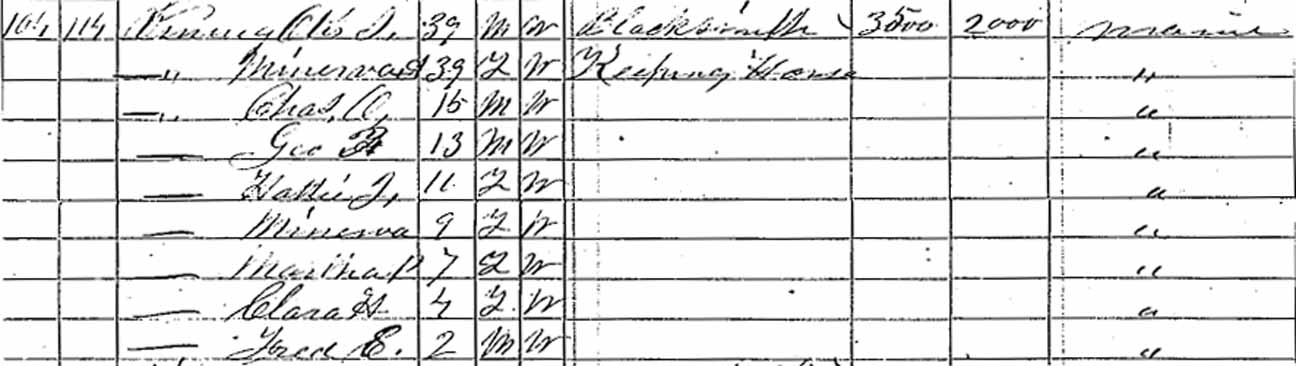 114 Otis J, 39 M W Blacksmith 3500 2000 Maine
—„ Minerva 39 F W Keeping House "
—„ Chas. O, 15 M W "
— Geo 13 M W "
— Hattie J, 11 F W "
— Minerva 9 F W "
— Martha P 7 F W "
— Clara H 4 F W "
— Fred E. 2 M W "